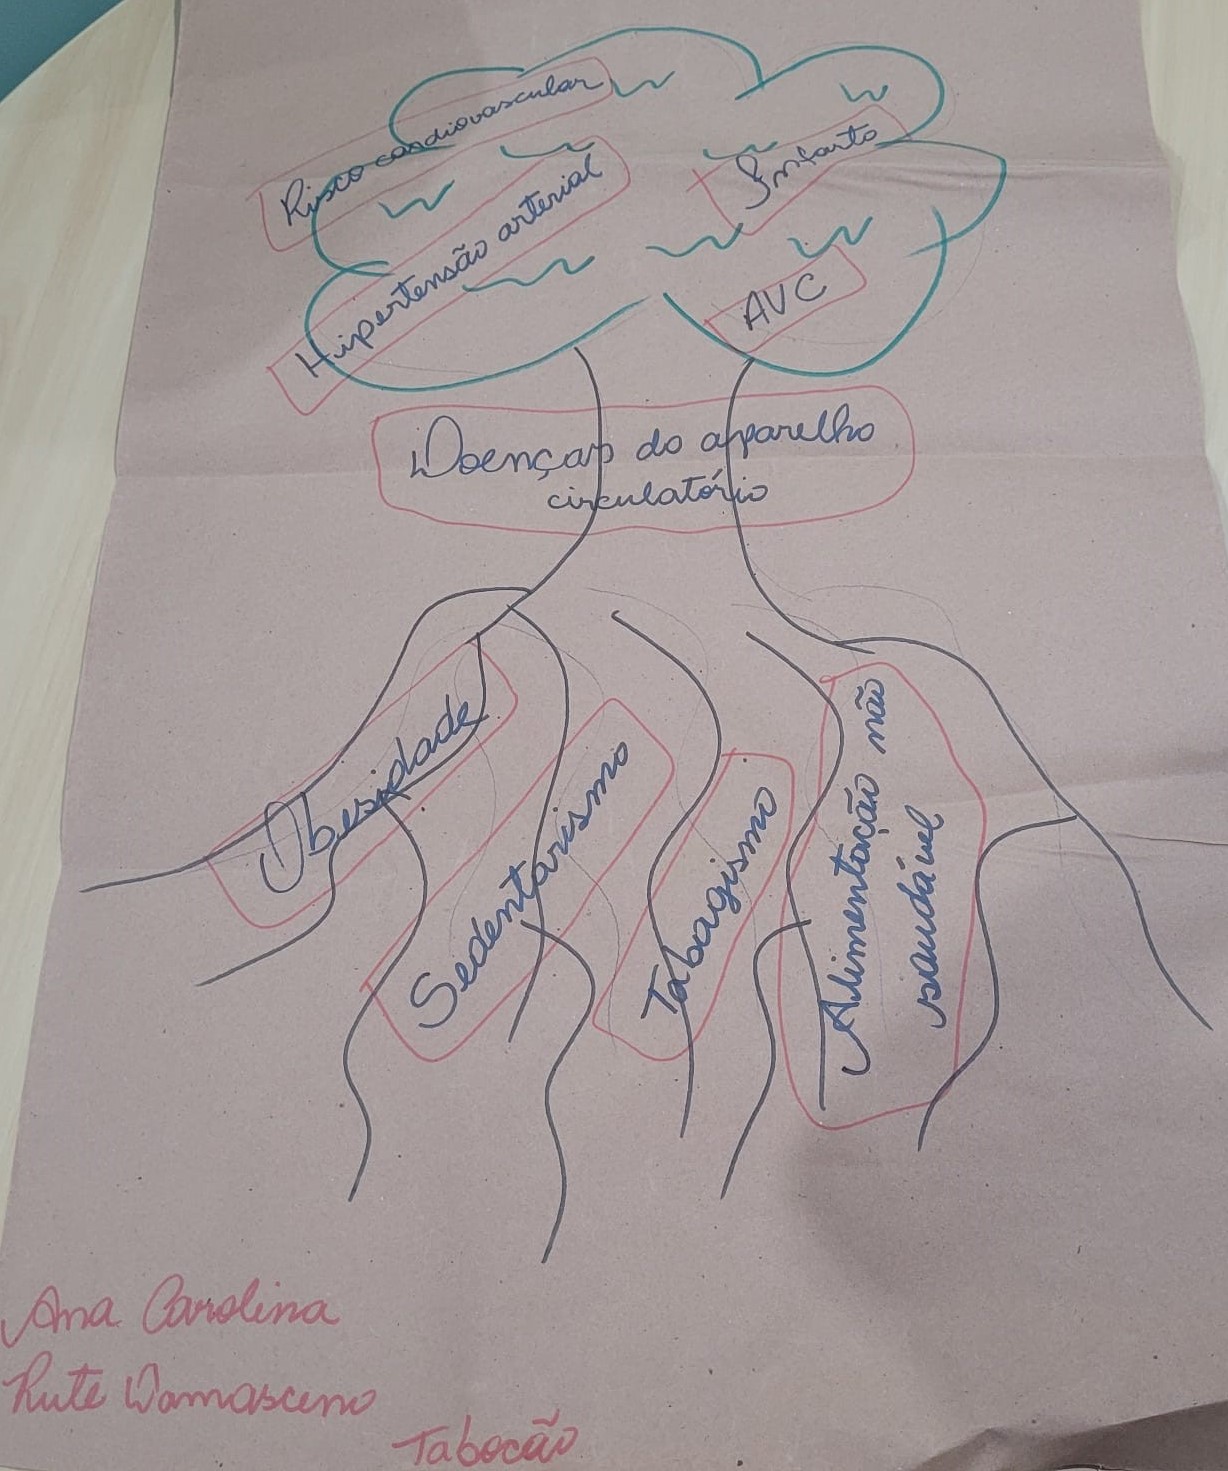 Risco cardiovascular
Infarto
Hipertensão arterial
AVC
Doenças do aparelho
circulatório
Obesidade
Sedentarismo
Tabagismo
Alimentação não
saudável
Ana Carolina
Rute Damasceno
Tabocão